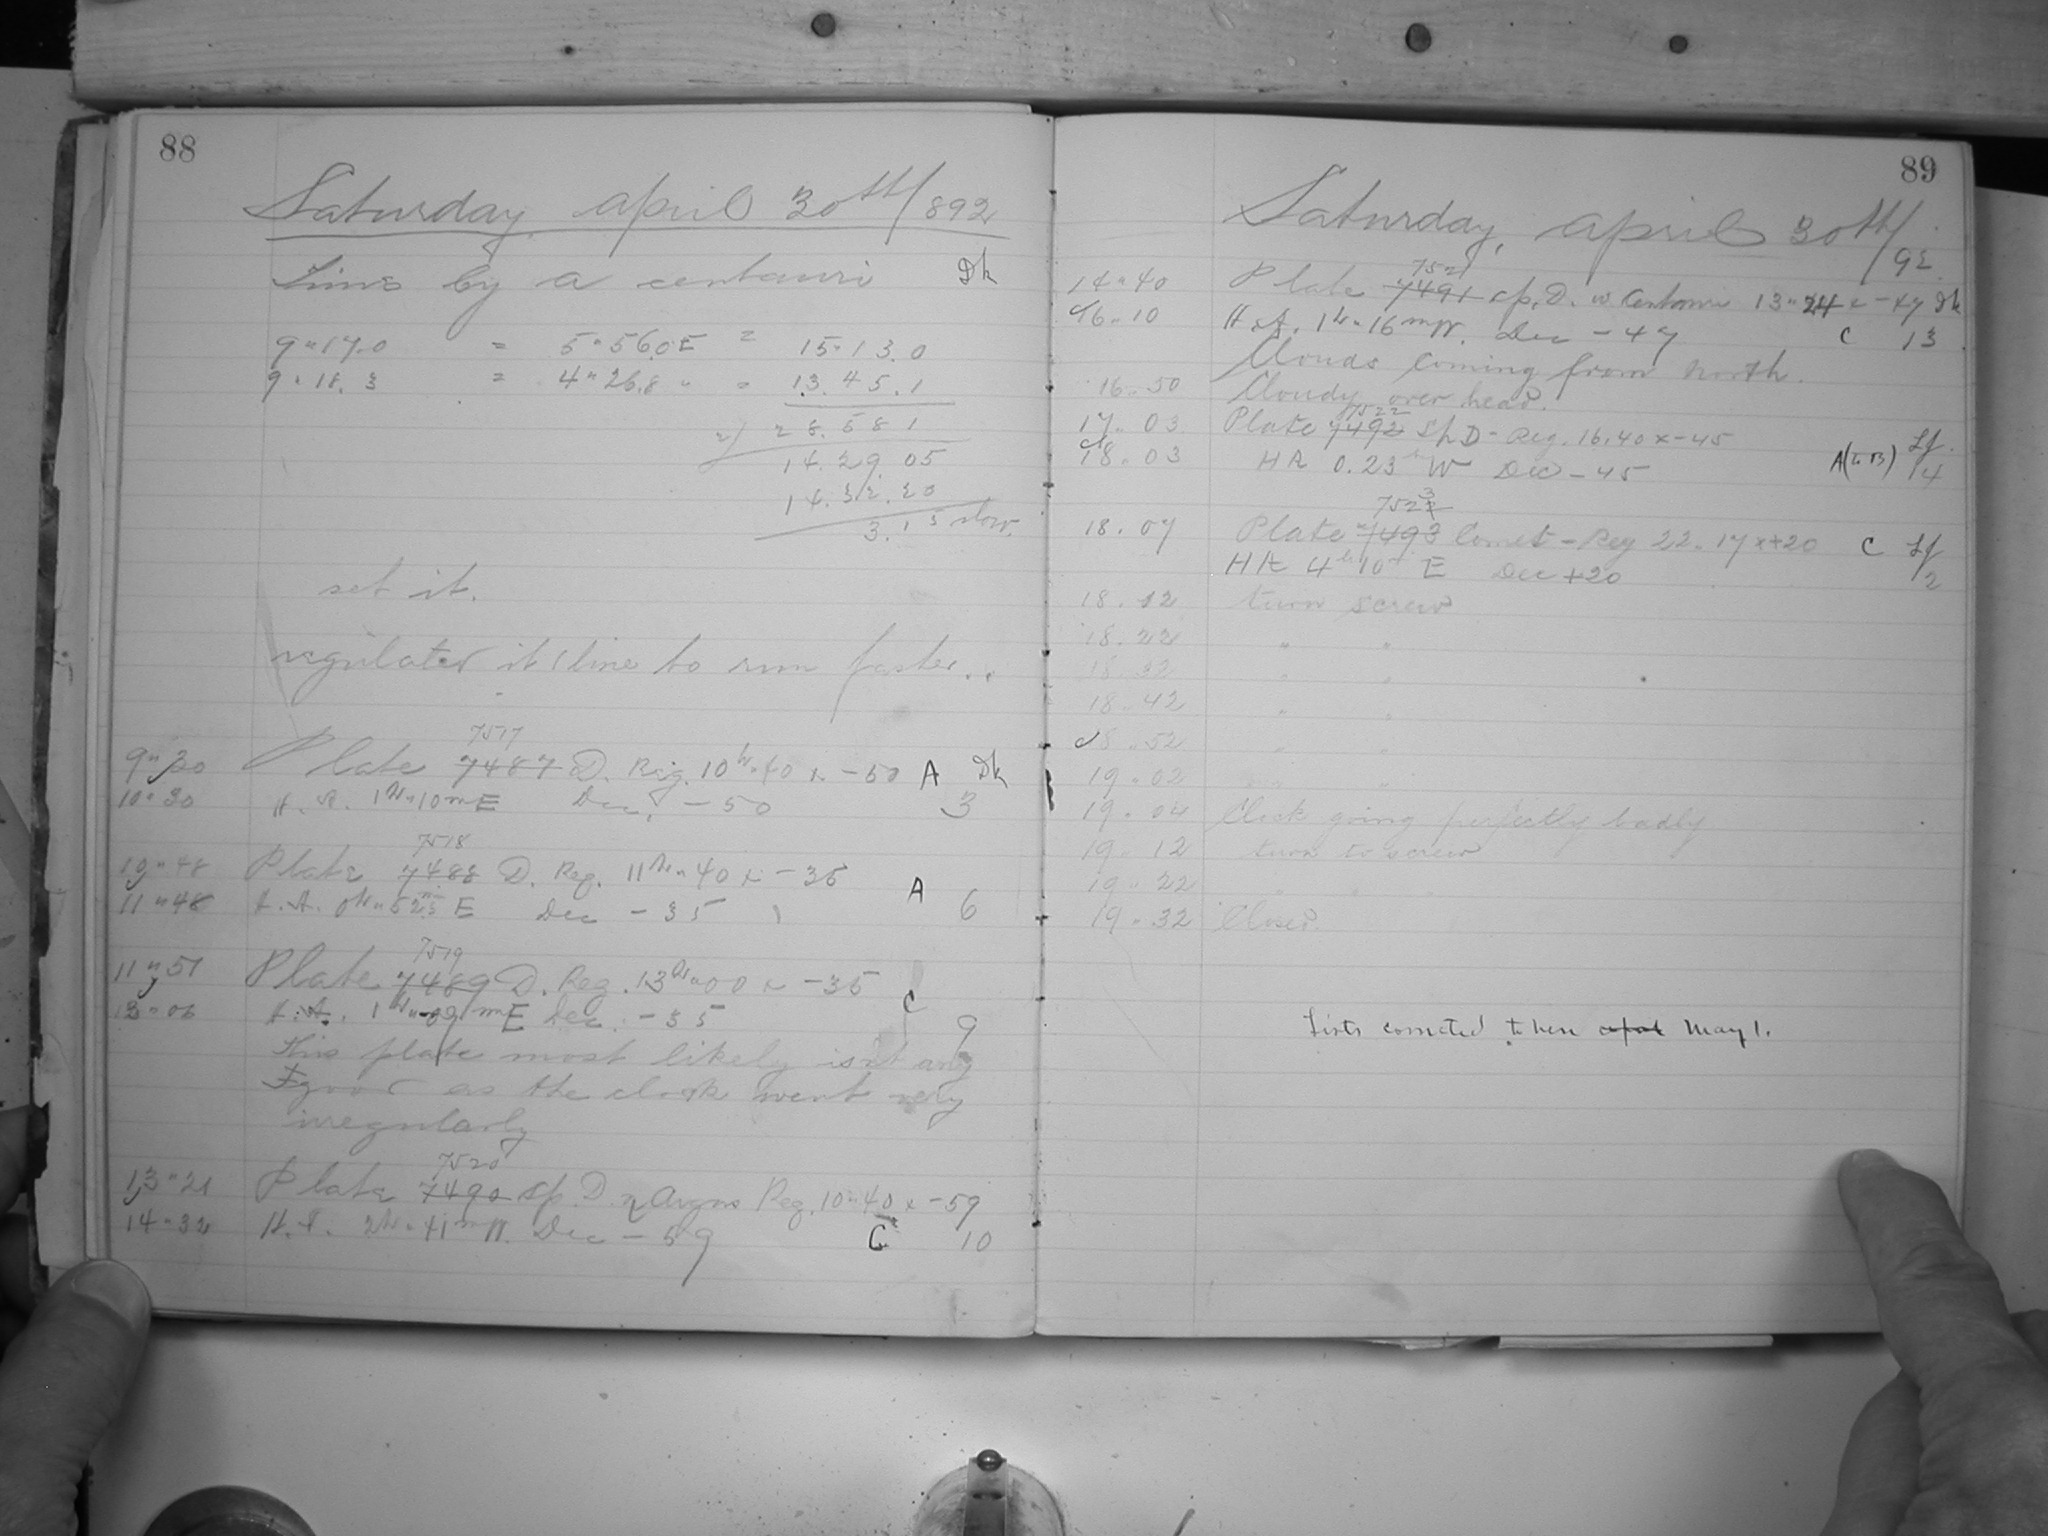 88
Saturday april 30th/892
Time by a centauri Dk
9"17.0 = 5"56.0E = 15.13.0
9"18.3 = 4"26.8 " = 13.45.1
2) 28.58 1
14.29.05
14.32.20
3.15 slow.
set it.
regulated it 1 line to run faster..
7517
9"30 Plate 7487 D. Reg. 10h"40 x -50 A Dk
10"30 H.A. 1h"10mE Dec. -50 3
7518
10"48 Plate 7488 D. Reg. 11h"40 x -35 A
11"48 H.A. 0h"52m E Dec -35 6
7519
11"51 Plate 7489 D. Reg. 13h"00 x -35 C
13"06 H.A. 1h"09mE Dec. -35 9
This plate most likely isn't any
good as the clock went very
irregularly
7520
13"21 Plate 7490 Sp. D. η Argus Reg. 10"40 x -59
14"32 H.A. 2h"41mW. Dec -59 C 10
89
Saturday, april 30th/92
7521
14"40 Plate 7491 Sp. D. w Centauri 13"24 x -47 Dk
16"10 H.A. 1h"16mW. Dec -47 C 13
Clouds coming from north.
16"50 Cloudy over head.
7522
17"03 Plate 7492 Sp D - Reg. 16.40 x -45 Lf.
18"03 HA 0.23 W Dec -45 A(to B) 4
7523
18.07 Plate 7493 Comet - Reg 22.17 x +20 C Lf
HA 4h10m E Dec +20 2
18.12 turn screw
18.22 " "
18.32 " "
18.42 " "
18.52 " "
19.02 " "
19.04 Clock going perfectly badly
19.12 turn to screw
19.22 " " "
19.32 Closed.
Lists corrected to here april May 1.